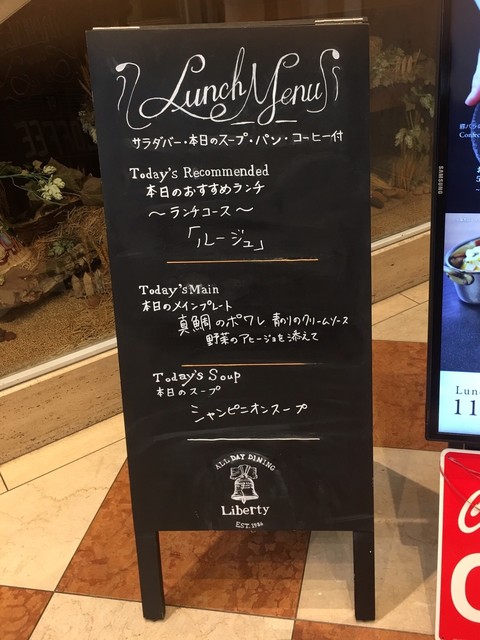 Lunch Menu
サラダバー・本日のスープ・パン・コーヒー付
Today's Recommended
本日のおすすめランチ
～ランチコース～
「ルージュ」
Today's Main
本日のメインプレート
真鯛のポワレ 青のりのクリームソース
野菜のアヒージョを添えて
Today's Soup
本日のスープ
シャンピニオンスープ
ALL DAY DINING
Liberty
EST. 1986
SAMSUNG
Lun
11